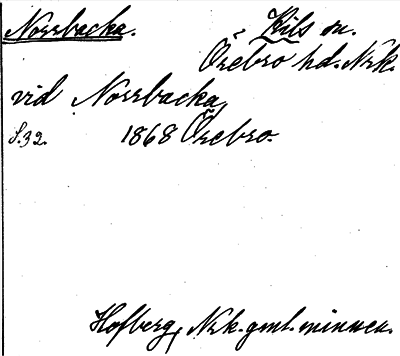 Norrbacka. Kils sn.
Örebro hd. Nrk.
vid Norrbacka,
S. 32. 1868 Örebro.
Hofberg, Nrk. gml. minnen.